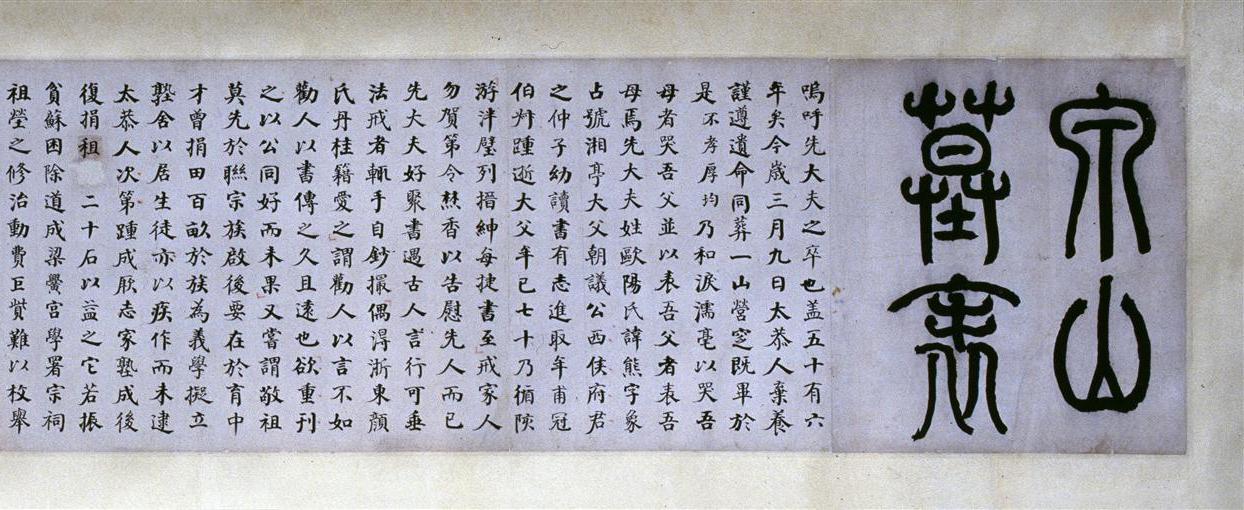 宗山
墓表
嗚呼先大夫之卒也盖五十有六
年矣今歲三月九日太恭人棄養
謹遵遺命同葬一山營窆既畢於
是不孝厚均乃和淚濡毫以哭吾
母者哭吾父並以表吾父者表吾
母焉先大夫姓歐陽氏諱熊字象
占號湘亭大父朝議公西侯府君
之仲子幼讀書有志進取年甫冠
伯叔踵逝大父年已七十乃循陔
游泮璧列搢紳每捷書至戒家人
勿賀第令爇香以告慰先人而已
先大夫好聚書遇古人言行可垂
法戒者輒手自鈔撮偶得浙東顏
氏丹桂籍愛之謂勸人以言不如
勸人以書傳之久且遠也欲重刊
之以公同好而未果又嘗謂敬祖
莫先於聯宗族啟後要在於育中
才曾捐田百畝於族為義學擬立
塾舍以居生徒亦以疾作而未逮
太恭人次第踵成厥志家塾成後
復捐租二十石以益之它若振
貧蘇困除道成梁黌宮學署宗祠
祖塋之修治動費巨貲難以枚舉